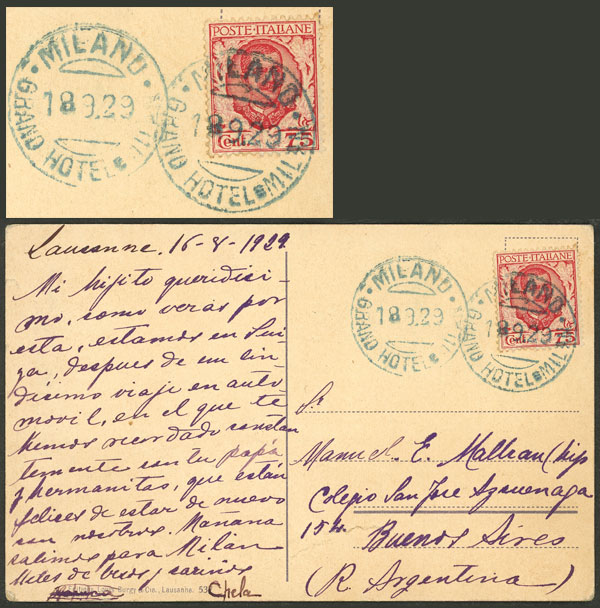 MILANO
18 9.29
GRAND HOTEL
MILANO
18 9.29
GRAND HOTEL MIL
POSTE ITALIANE
Cent. 75
Lausanne. 16-8-1929
Mi hijito queridisi-
mo, como verás por
esta, estamos en Sui
za, despues de un lin
dísimo viaje en auto
movil, en el que te
hemos recordado constan
temente con tu papá
y hermanitos, que están
felices de estar de nuevo
con nosotros. Mañana
salimos para Milan
Miles de besos y cariños
Chela
Burgy & Cie., Lausanne. 53
MILANO
18 9.29
GRAND HOTEL
MILANO
18 9.29
GRAND HOTEL MIL
POSTE ITALIANE
Cent. 75
Sr.
Manuel. E. Malbran (hijo
Colegio San Jose Azcuenaga
154
Buenos Aires
(R. Argentina)